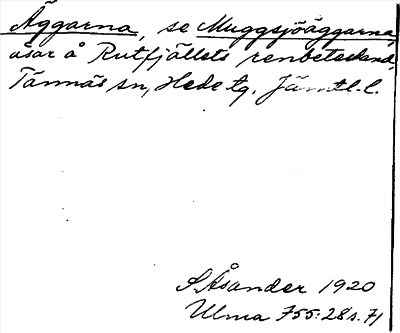 Äggarna, se Muggsjöäggarna,
åsar å Rutfjällets renbetesland,
Tännäs sn, Hede tg. Jämtl. l.
S. Åsander 1920
Ulma 755:28 s. 71